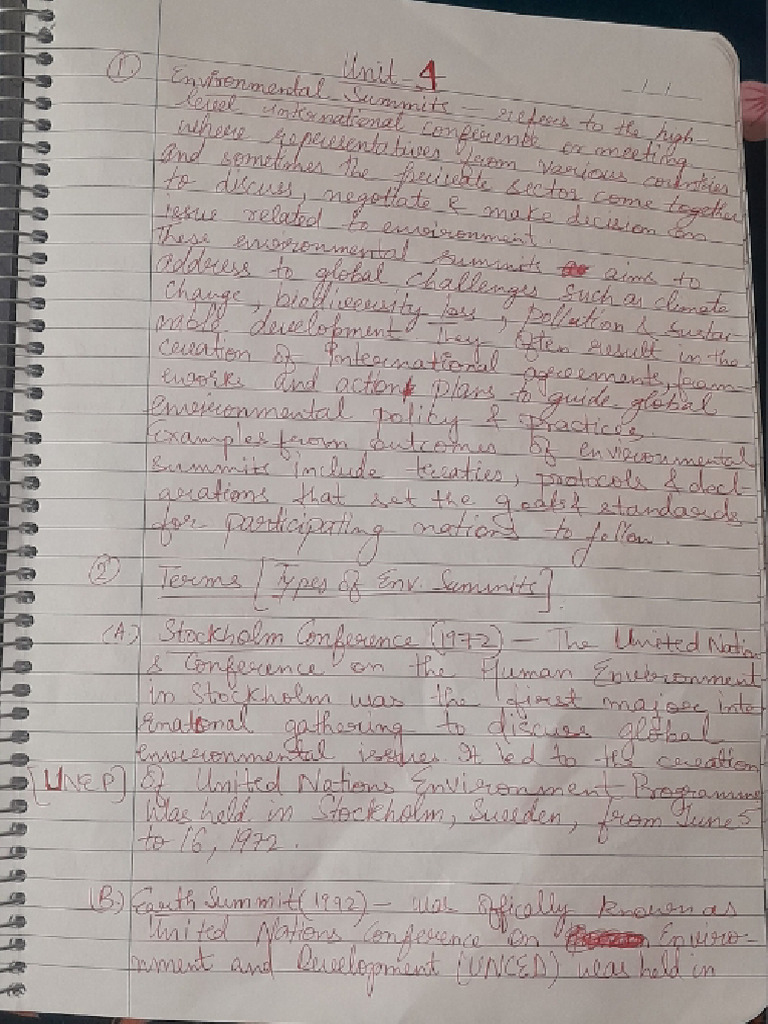 Unit - 4
① Environmental Summits - refers to the high-
level international conference or meeting
where representatives from various countries
and sometimes the private sector come together
to discuss, negotiate & make decision on
issue related to environment.
These environmental summits aims to
address to global challenges such as climate
change, biodiversity loss, pollution & sustai
nable development they often result in the
creation of International agreements, fram-
eworks and action plans to guide global
environmental policy & practices.
Examples from outcomes of environmental
summits include treaties, protocols & decl-
arations that set the goals & standards
for participating nations to follow.
② Terms [Types of Env. Summits].
(A) Stockholm Conference (1972) - The United Nation
s Conference on the Human Environment
in Stockholm was the first major inte
rnational gathering to discuss global
environmental issues. It led to the creation
[UNEP] of United Nations Environment Programme
Was held in Stockholm, Sweden, from June 5
to 16, 1972.
(B.) Earth Summit (1992) - was offically known as
United Nations Conference on Enviro-
nment and Development (UNCED) was held in